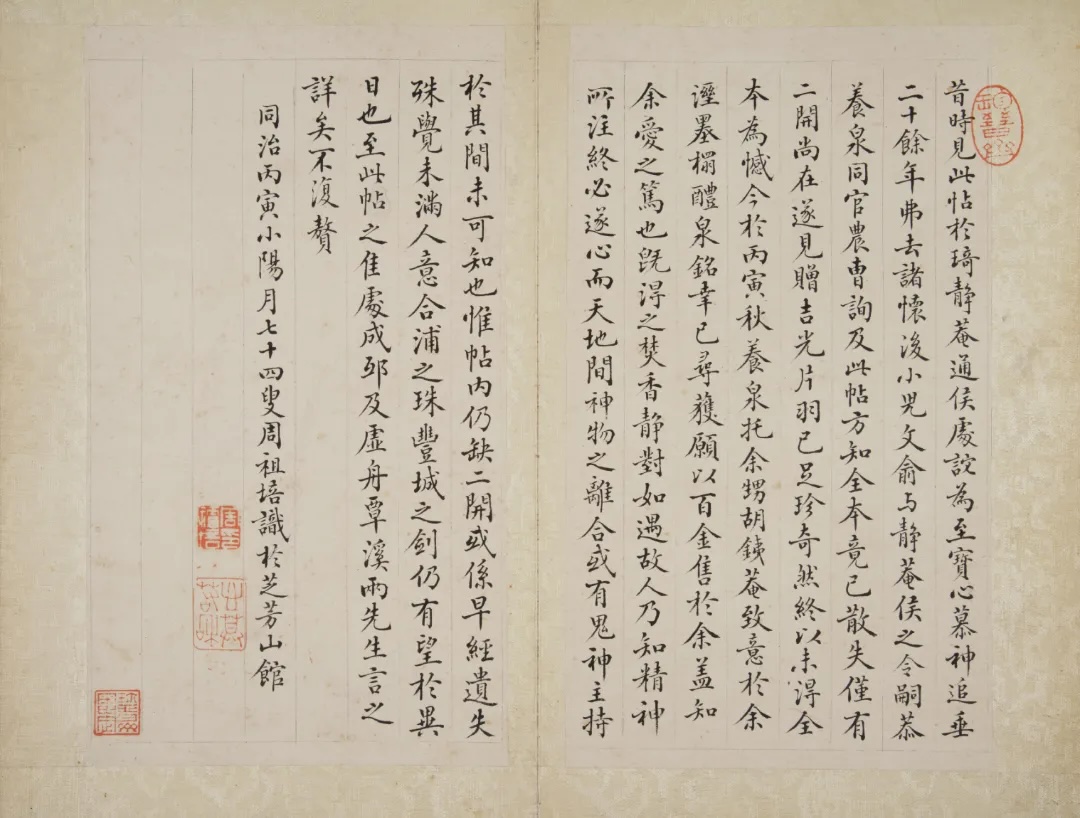 昔時見此帖於琦靜菴通侯處詫為至寶心慕神追垂
二十餘年弗去諸懷後小兒文俞与靜菴侯之令嗣恭
養泉同官農曹詢及此帖方知全本竟已散失僅有
二開尚在遂見贈吉光片羽已足珍奇然終以未得全
本為憾今於丙寅秋養泉托余甥胡銕菴致意於余
溼墨榻醴泉銘幸已尋獲願以百金售於余盖知
余愛之篤也既得之焚香靜對如遇故人乃知精神
所注終必遂心而天地間神物之離合或有鬼神主持
於其間未可知也惟帖內仍缺二開或係早經遺失
殊覺未滿人意合浦之珠豐城之劍仍有望於異
日也至此帖之佳處成邸及虛舟覃溪兩先生言之
詳矣不復贅
同治丙寅小陽月七十四叟周祖培識於芝芳山館
周祖培